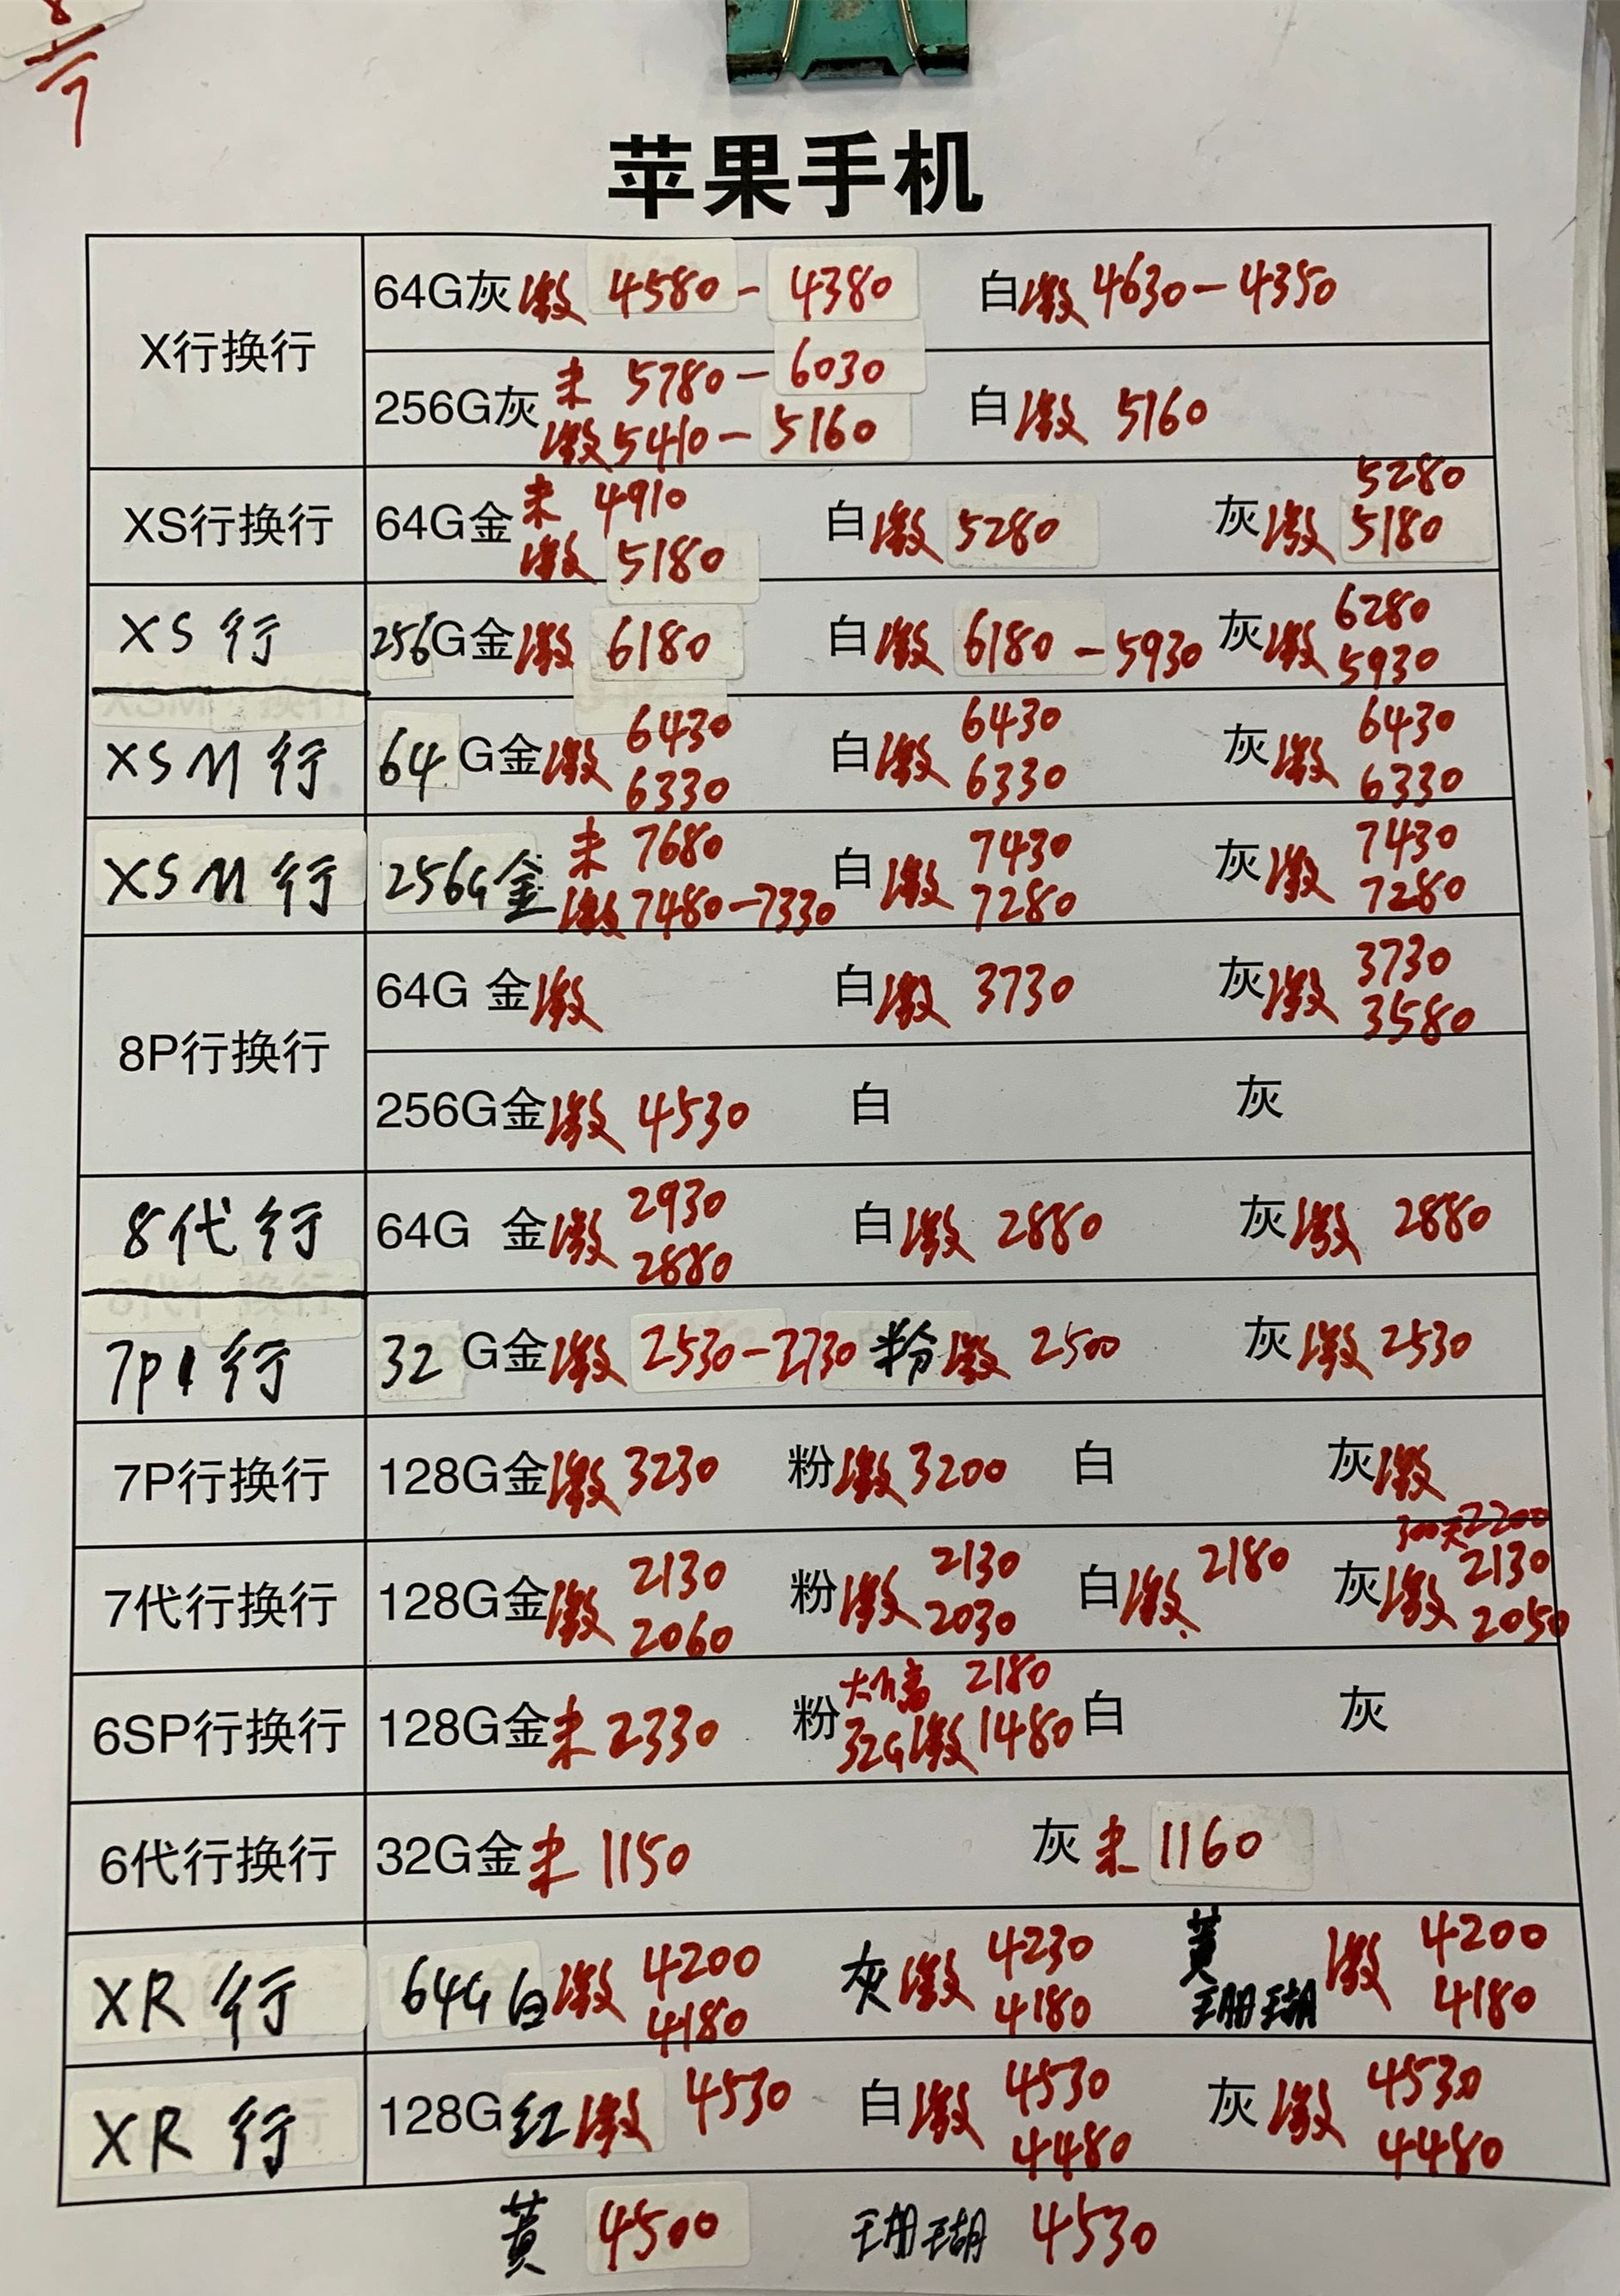 8/7
苹果手机
X行换行 64G灰 激 4580-4380 白 激 4630-4350
256G灰 未 5780-6030
激 5410-5160 白 激 5160
XS行换行 64G金 未 4910
激 5180 白 激 5280 灰 激 5280
5180
XS行 256G金 激 6180 白 激 6180-5930 灰 激 6280
5930
XSM行 64G金 激 6430
6330 白 激 6430
6330 灰 激 6430
6330
XSM行 256G金 未 7680
激 7480-7330 白 激 7430
7280 灰 激 7430
7280
8P行换行 64G 金 激 白 激 3730 灰 激 3730
3580
256G金 激 4530 白 灰
8代行 64G 金 激 2930
2880 白 激 2880 灰 激 2880
7P行 32G金 激 2530-2730 粉 激 2500 灰 激 2530
7P行换行 128G金 激 3230 粉 激 3200 白 灰 激
300天2200
7代行换行 128G金 激 2130
2060 粉 激 2130
2030 白 激 2180 灰 激 2130
2050
6SP行换行 128G金 未 2330 粉 2180
32G激 1480 白 灰
6代行换行 32G金 未 1150 灰 未 1160
XR行 64G白 激 4200
4180 灰 激 4230
4180 黄
珊瑚 激 4200
4180
XR行 128G红 激 4530 白 激 4530
4480 灰 激 4530
4480
黄 4500 珊瑚 4530